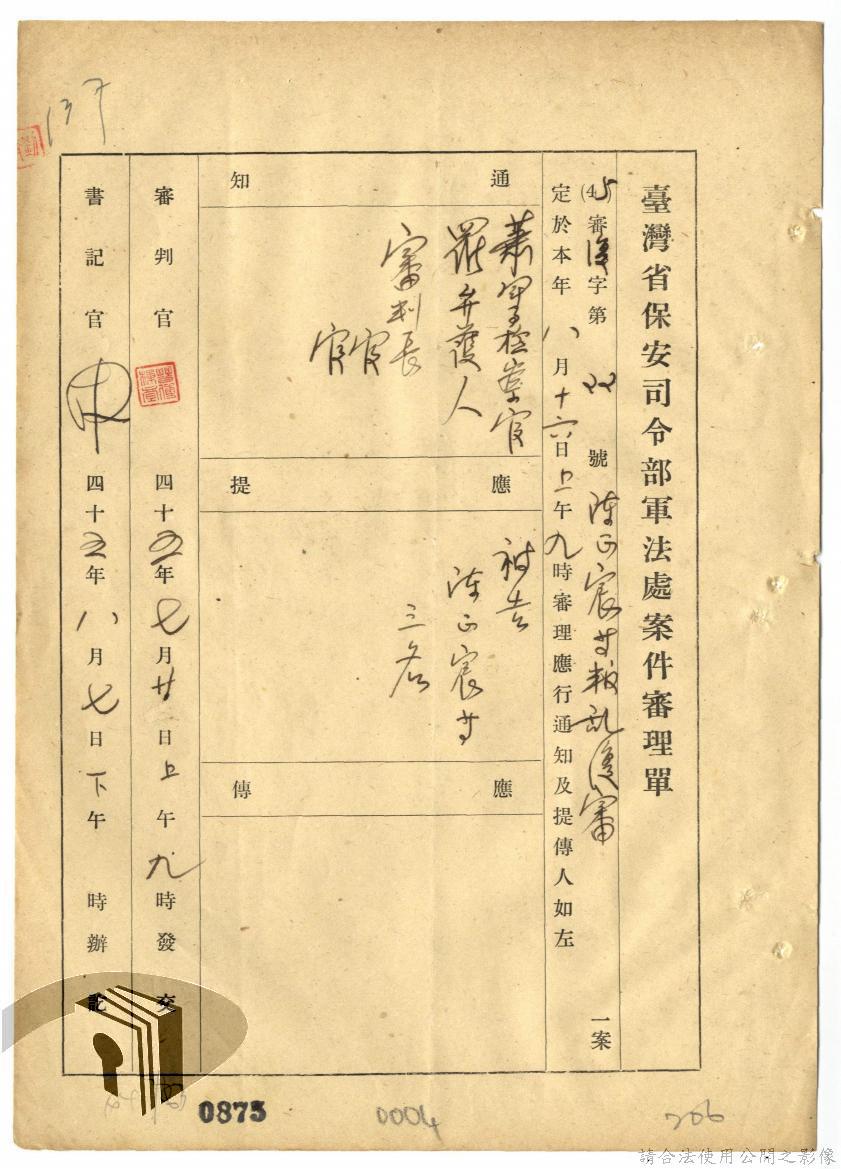 臺灣省保安司令部軍法處案件審理單
(45)審復字第 22 號 陳正宸等叛乱復審 一案
定於本年八月十六日上午九時審理應行通知及提傳人如左
通知
蕭軍檢察官
羅弁護人
審判長
官
官
應提
被告
陳正宸等
三名
應傳
審判官 四十五年七月廿 日上午九時發交
書記官 四十五年八月七日下午 時辦訖
137
0875
0004
206
請合法使用公開之影像